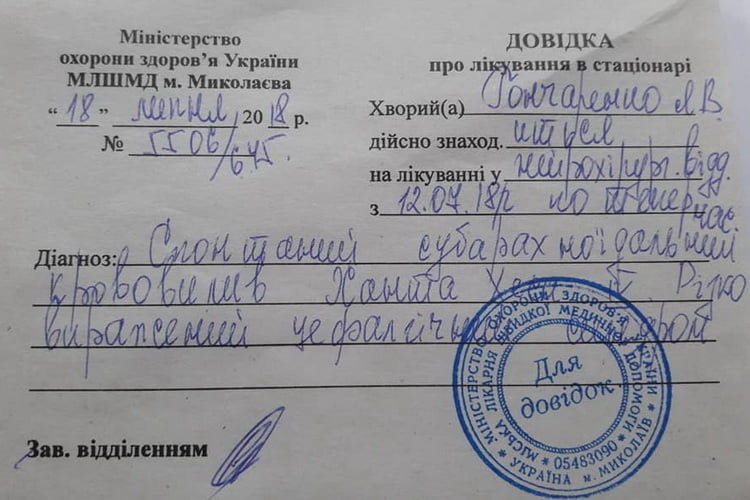 Міністерство
охорони здоров'я України
МЛШМД м. Миколаєва
“18” липня 2018 р.
№ 5506/645.
ДОВІДКА
про лікування в стаціонарі
Хворий(а) Гончаренко Л.В.
дійсно знаход. ится
на лікуванні у нейрохірург. відд.
з 12.07.18р по тепер час.
Діагноз: Спонтаний субарахноїдальний
крововилив Ханта Хесс Різко
виражений цефалгічний синдром
Зав. відділенням
МІНІСТЕРСТВО ОХОРОНИ ЗДОРОВ'Я УКРАЇНИ
МІСЬКА ЛІКАРНЯ ШВИДКОЇ МЕДИЧНОЇ ДОПОМОГИ
* 05483090 *
* УКРАЇНА м. МИКОЛАЇВ *
Для
довідок